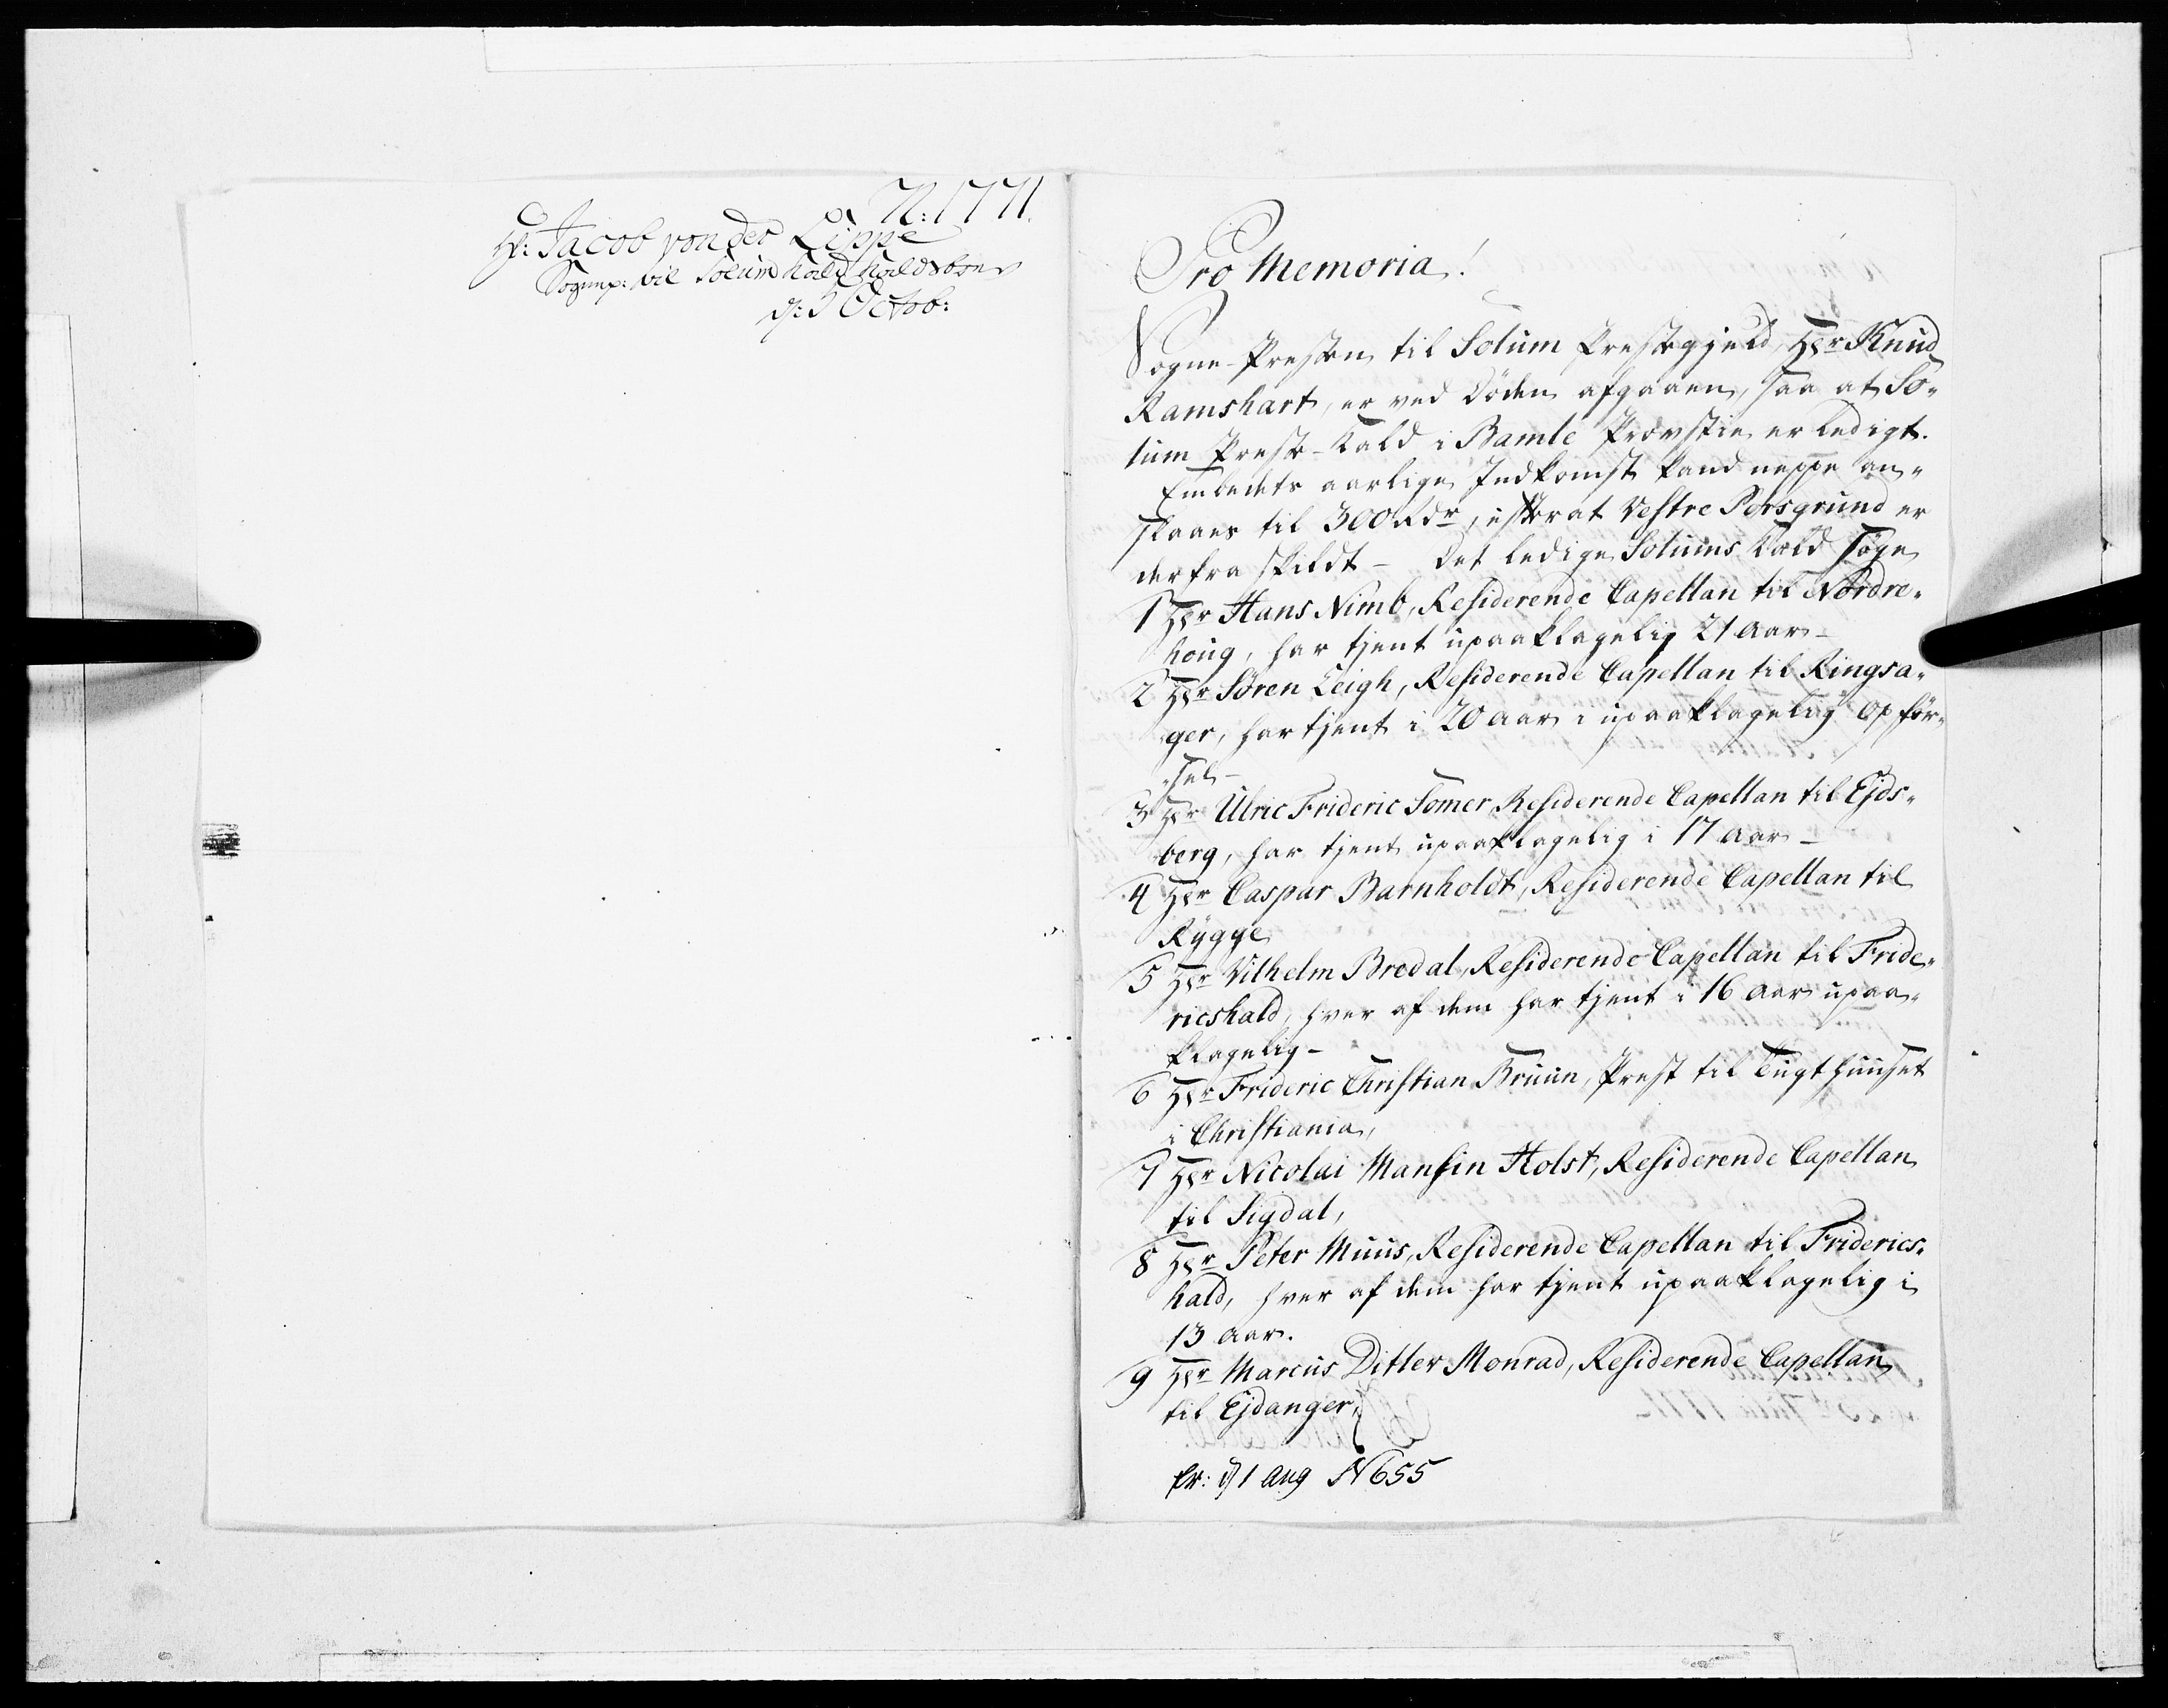 N: 1771.
Hr: Jacob von der Lippe
Sognep: til Solum Kald Kaldsbrev
d: 3 Octob:
Pro Memoria!
Sogne-Presten til Solum Prestegjeld, Hr Knud
Ramshart, er ved Døden afgaaen, saa at So-
lum Preste-Kald i Bamle Provstie er ledigt.
Embedets aarlige Indkomst kand neppe an-
slaaes til 300 Rdr, efterat Vestre Porsgrund er
derfra skildt - Det ledige Solums Kald søge
1 Hr Hans Nimb, Residerende Capellan til Nordre-
houg, har tjent upaaklagelig 21 Aar -
2 Hr Søren Leigh, Residerende Capellan til Ringsa-
ger, har tjent i 20 Aar i upaaklagelig Opför-
-sel -
3 Hr Ulric Frideric Somer Residerende Capellan til Ejds-
berg, har tjent upaaklagelig i 17 Aar -
4 Hr Caspar Barnholdt, Residerende Capellan til
Rygge
5 Hr Vilhelm Bredal, Residerende Capellan til Fride-
ricshald, hver af dem har tjent i 16 Aar upaa-
klagelig -
6 Hr Frideric Christian Bruun, Prest til Tugthuuset
i Christiania,
7 Hr Nicolai Mansin Holst, Residerende Capellan
til Sigdal,
8 Hr Peter Muus, Residerende Capellan til Friderics-
hald, hver af dem har tjent upaaklagelig i
13 Aar.
9 Hr Marcus Ditlev Monrad, Residerende Capellan
til Ejdanger,
Pr: d 1 Aug N 655